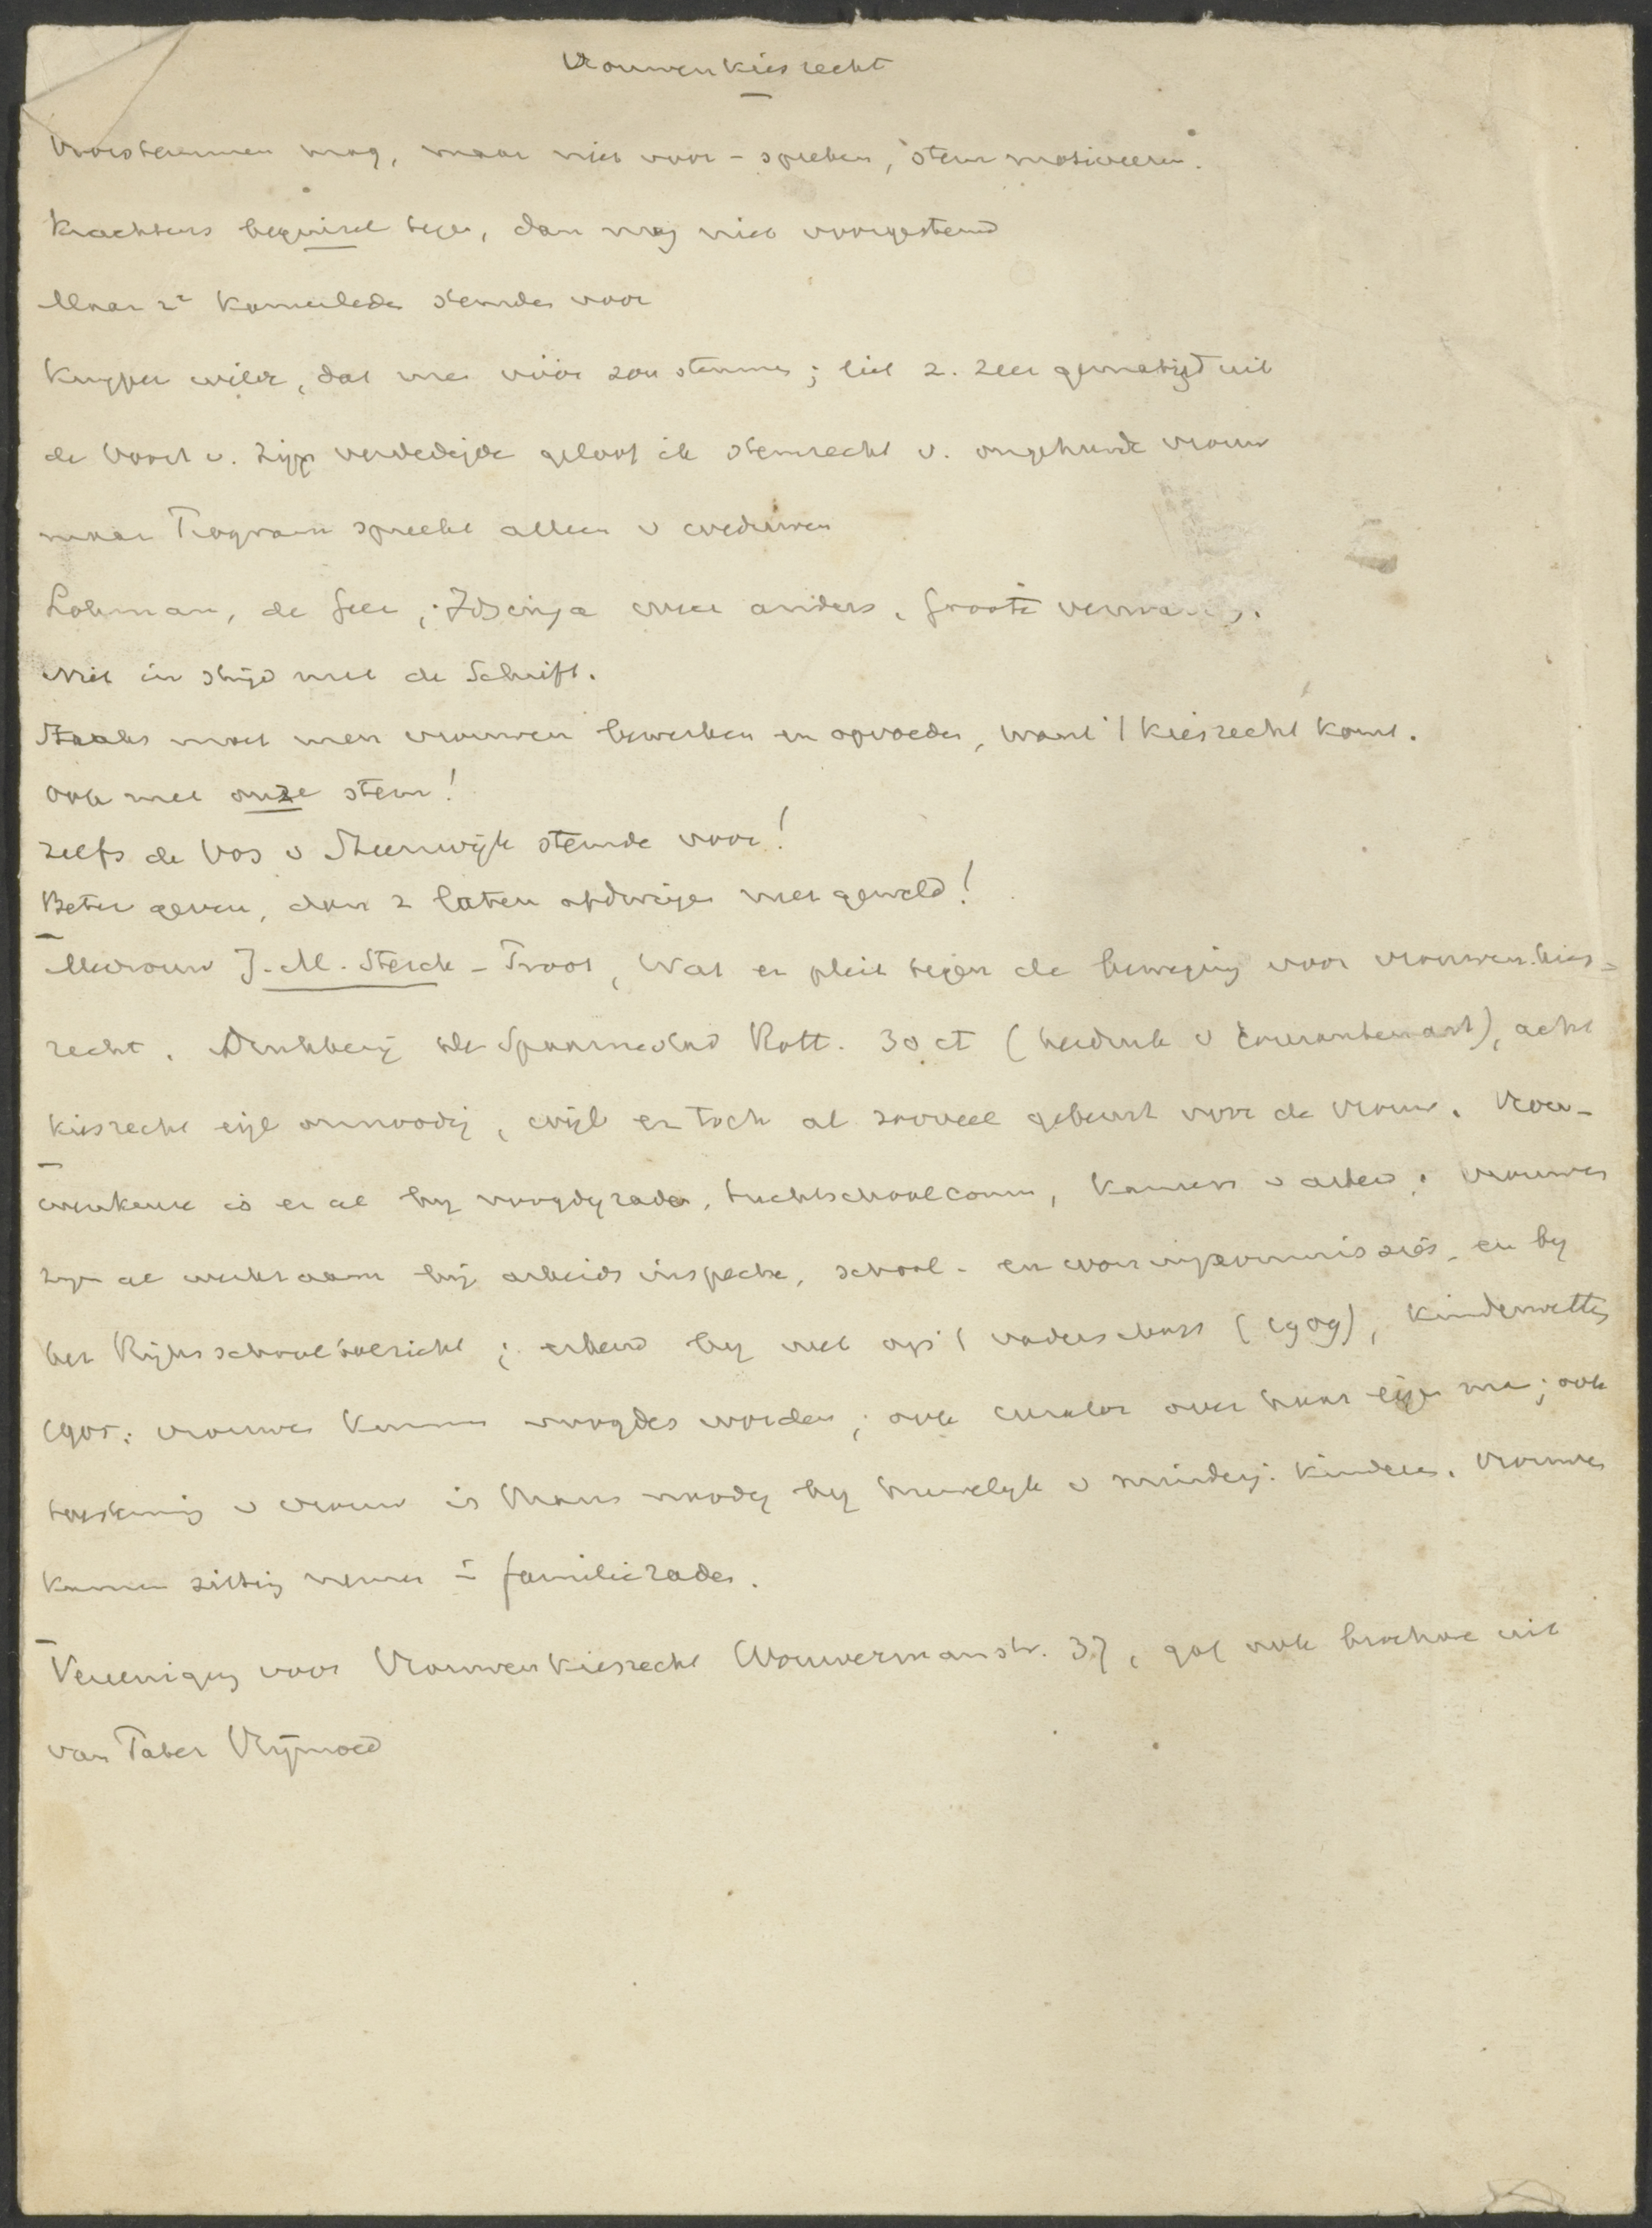 Vrouwenkiesrecht
Voorstemmen mag, maar niet voor-spreken, stem motiveeren.
Krachtens beginsel tegen, dan mag niet voorgestemd
Maar 2e Kamerleden stemden voor
Kuyper wilde, dat men vóór zou stemmen; liet z. zeer gematigd uit
de Voort v. Zijp verdedigde geloof ik stemrecht v. ongehuwde vrouw
maar Program spreekt alleen v weduwen
Lohman, de Geer, Idsinga weer anders. Groote verwarring.
Niet in strijd met de Schrift.
Straks moet men vrouwen bewerken en opvoeden, want 't kiesrecht komt.
Ook met onze stem!
Zelfs de Vos v Steenwijk stemde voor!
Beter geven, dan z laten afdwingen met geweld!
Mevrouw J. M. Sterck-Proot, Wat er pleit tegen de beweging voor vrouwenkies=
recht. Drukkerij de Spaarnestad 30 ct (herdruk v courantenart), acht
kiesrecht onnoodig, wijl er toch al zooveel gebeurt voor de vrouw. Vrou-
wenkeuze is er al bij voogdijraden, tuchtschoolcomm, Kamers v arbeid; vrouwen
zijn al werkzaam bij arbeidsinspectie, school- en woningcommissiës, en bij
het Rijksschooltoezicht; erkend bij wet op 't vaderschap (1909), Kinderwetten
1905: vrouwen kunnen voogdes worden; ook curator over haar eigen man; ook
toestemming v vrouw is thans noodig bij huwelijk v minderj. kinderen. Vrouwen
kunnen zitting nemen in familieraden.
Vereeniging voor Vrouwenkiesrecht Wouwermanstr. 37, gaf ook brochure uit
van Taber Vrijmoed